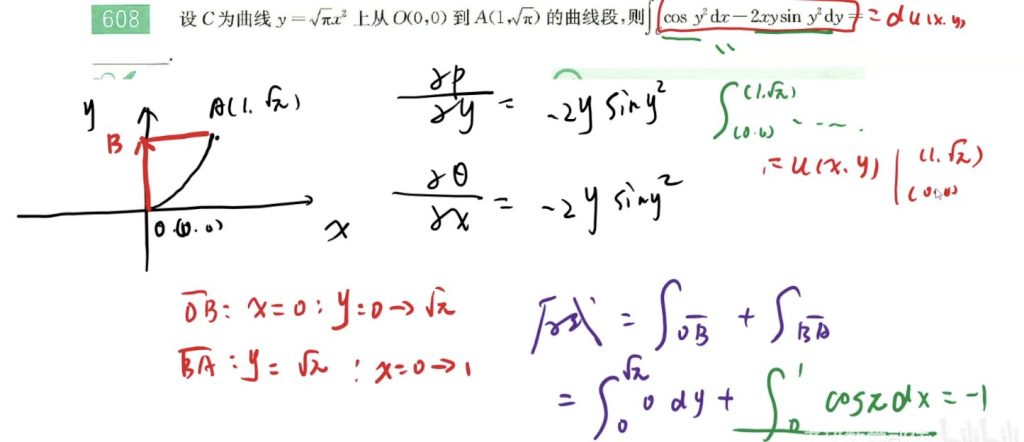 608 设C为曲线 y=√πx² 上从O(0,0)到A(1,√π)的曲线段,则∫_C cos y²dx-2xysin y²dy= = du(x.y)
.
y
A(1.√π)
B
O (0.0)
x
∂P/∂y = -2y siny²
∂Q/∂x = -2y siny²
∫_(0.0)^(1.√π) ......
= u(x.y) | (1.√π) (0.0)
OB: x=0 : y=0→√π
BA : y=√π : x=0→1
原式 = ∫_OB + ∫_BA
= ∫_0^√π 0 dy + ∫_0^1 cosπdx = -1